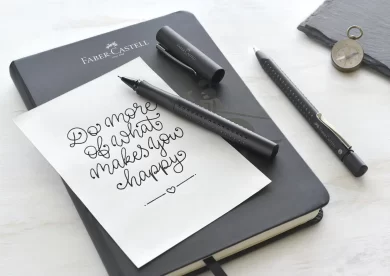 FABER-CASTELL
Do more
of what
makes you
happy